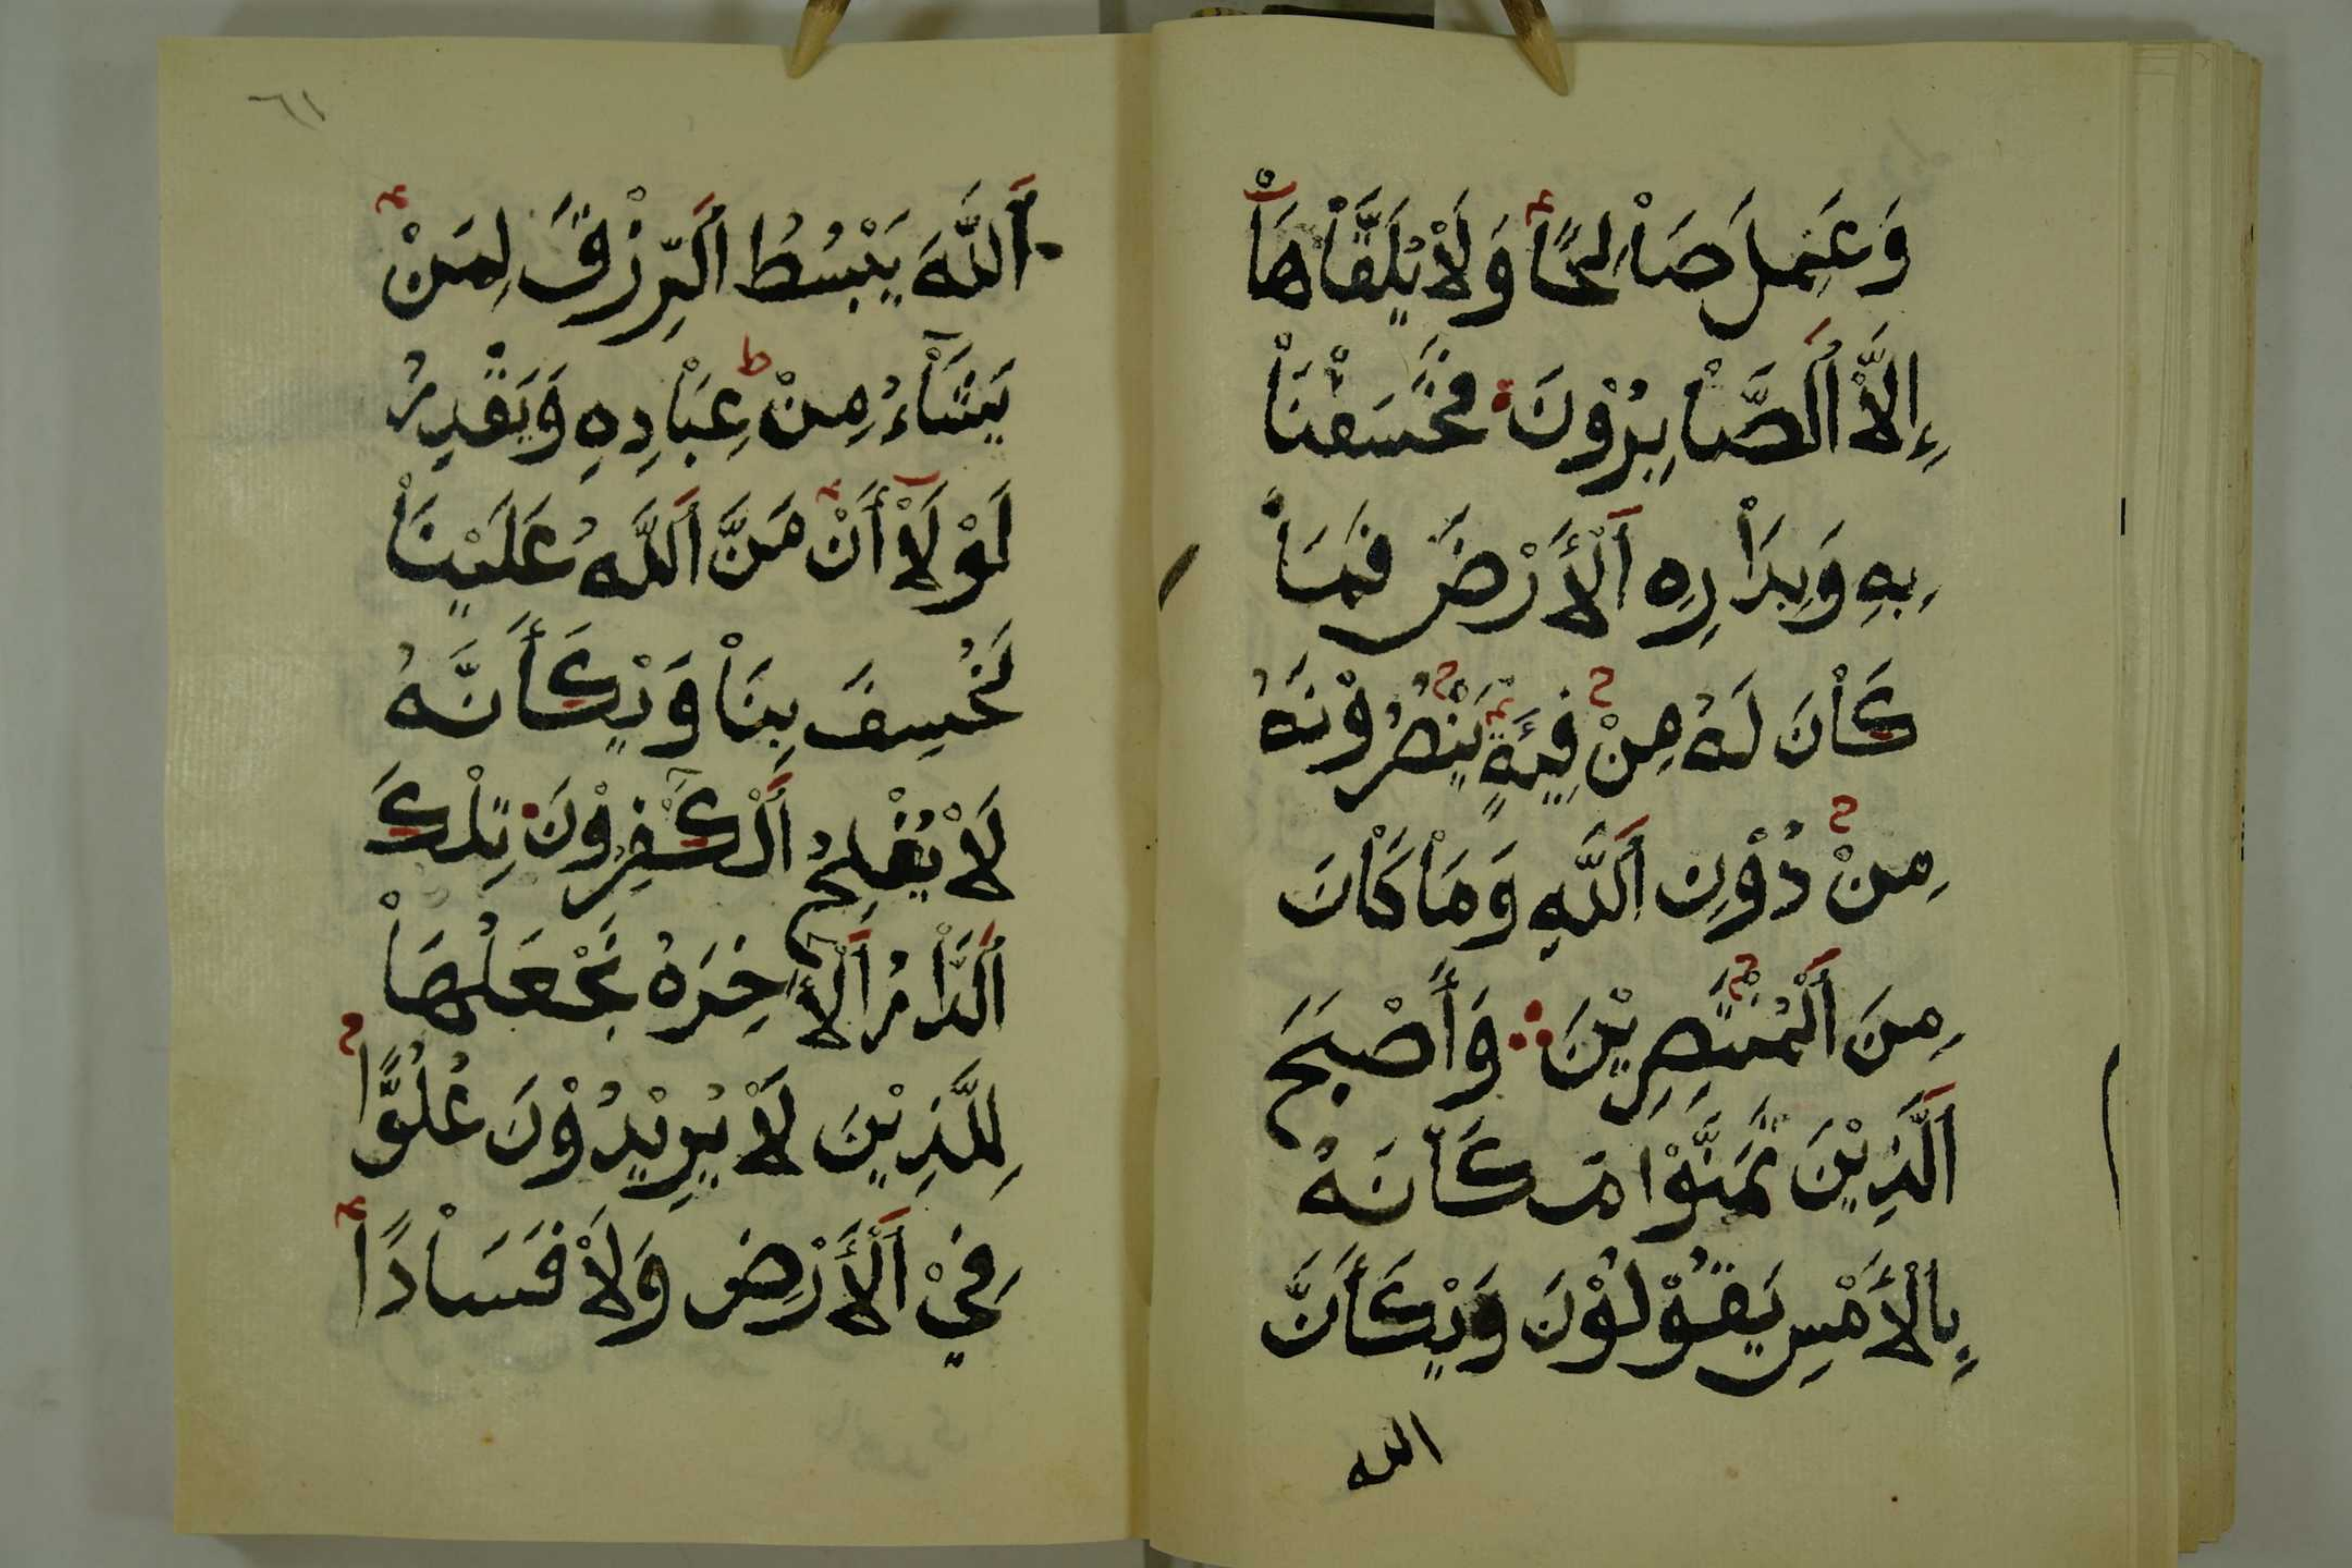 وَعَمِلَ صَاْلِحًا وَلَاْ يُلَقَّاْهَاْ
إِلَّاْ اَلصَّاْبِرُوْنَ فَخَسَفْنَاْ
بِهِ وَبِدَاْرِهِ اَلْأَرْضَ فَمَاْ
كَاْنَ لَهُ مِنْ فِيَةٍ يَنْصُرُوْنَهُ
مِنْ دُوْنِ اَللَّهِ وَمَاْ كَاْنَ
مِنَ اَلْمُنْتَصِرِيْنَ وَأَصْبَحَ
اَلَّذِيْنَ تَمَنَّوْا مَكَاْنَهُ
بِالْأَمْسِ يَقُوْلُوْنَ وَيْكَأَنَّ
الله
٦١
اَللَّهَ يَبْسُطُ اَلرِّزْقَ لِمَنْ
يَشَاْءُ مِنْ عِبَاْدِهِ وَيَقْدِرُ
لَوْلَاْ أَنْ مَنَّ اَللَّهُ عَلَيْنَاْ
لَخُسِفَ بِنَاْ وَيْكَأَنَّهُ
لَاْ يُفْلِحُ اَلْكَفِرُوْنَ تِلْكَ
اَلدَّاْرُ اَلْأَخِرَةُ نَجْعَلُهَاْ
لِلَّذِيْنَ لَاْ يُرِيْدُوْنَ عُلُوًّا
فِيْ اَلْأَرْضِ وَلَاْ فَسَاْدًا